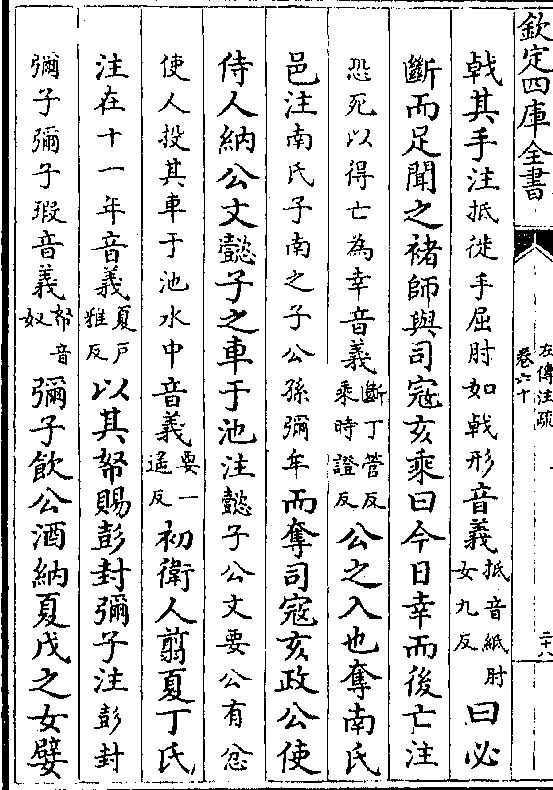 欽定四庫全書
左傳注疏
卷六十
二十八
戟其手注抵徙手屈肘如戟形音義抵音紙肘女九反曰必
斷而足聞之褚師與司寇亥乘曰今日幸而後亡注
恐死以得亡為幸音義斷丁管反乘時證反公之入也奪南氏
邑注南氏子南之子公孫彌牟而奪司寇亥政公使
侍人納公文懿子之車于池注懿子公文要公有忿
使人投其車于池水中音義要一遥反初衛人翦夏丁氏
注在十一年音義夏戸雅反以其帑賜彭封彌子注彭封
彌子彌子瑕音義帑音奴彌子飲公酒納夏戊之女嬖